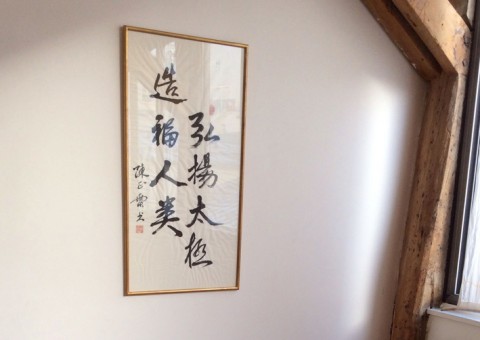 弘揚太极
造福人类
陳正雷书